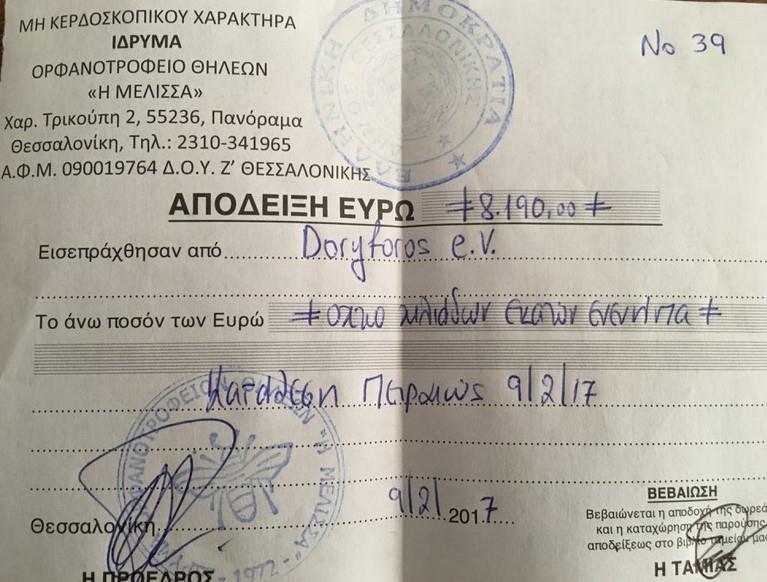 ΜΗ ΚΕΡΔΟΣΚΟΠΙΚΟΥ ΧΑΡΑΚΤΗΡΑ
ΙΔΡΥΜΑ
ΟΡΦΑΝΟΤΡΟΦΕΙΟ ΘΗΛΕΩΝ
«Η ΜΕΛΙΣΣΑ»
Χαρ. Τρικούπη 2, 55236, Πανόραμα
Θεσσαλονίκη, Τηλ.: 2310-341965
Α.Φ.Μ. 090019764 Δ.Ο.Υ. Ζ' ΘΕΣΣΑΛΟΝΙΚΗΣ
ΕΛΛΗΝΙΚΗ ΔΗΜΟΚΡΑΤΙΑ
ΘΕΣΣΑΛΟΝΙΚΗΣ
No 39
ΑΠΟΔΕΙΞΗ ΕΥΡΩ ≠ 8.190,00 ≠
Εισεπράχθησαν από Doryforos e.V.
Το άνω ποσόν των Ευρώ ≠ οκτώ χιλιάδων εκατόν ενενήντα ≠
Κατάθεση Πειραιώς 9/2/17
ΟΡΦΑΝΟΤΡΟΦΕΙΟΝ "Η ΜΕΛΙΣΣΑ"
1972
Θεσσαλονίκη 9/2/2017
Η ΠΡΟΕΔΡΟΣ
ΒΕΒΑΙΩΣΗ
Βεβαιώνεται η αποδοχή της δωρεά
και η καταχώρηση της παρούσης
αποδείξεως στο βιβλίο ταμείου μας
Η ΤΑΜΙΑΣ